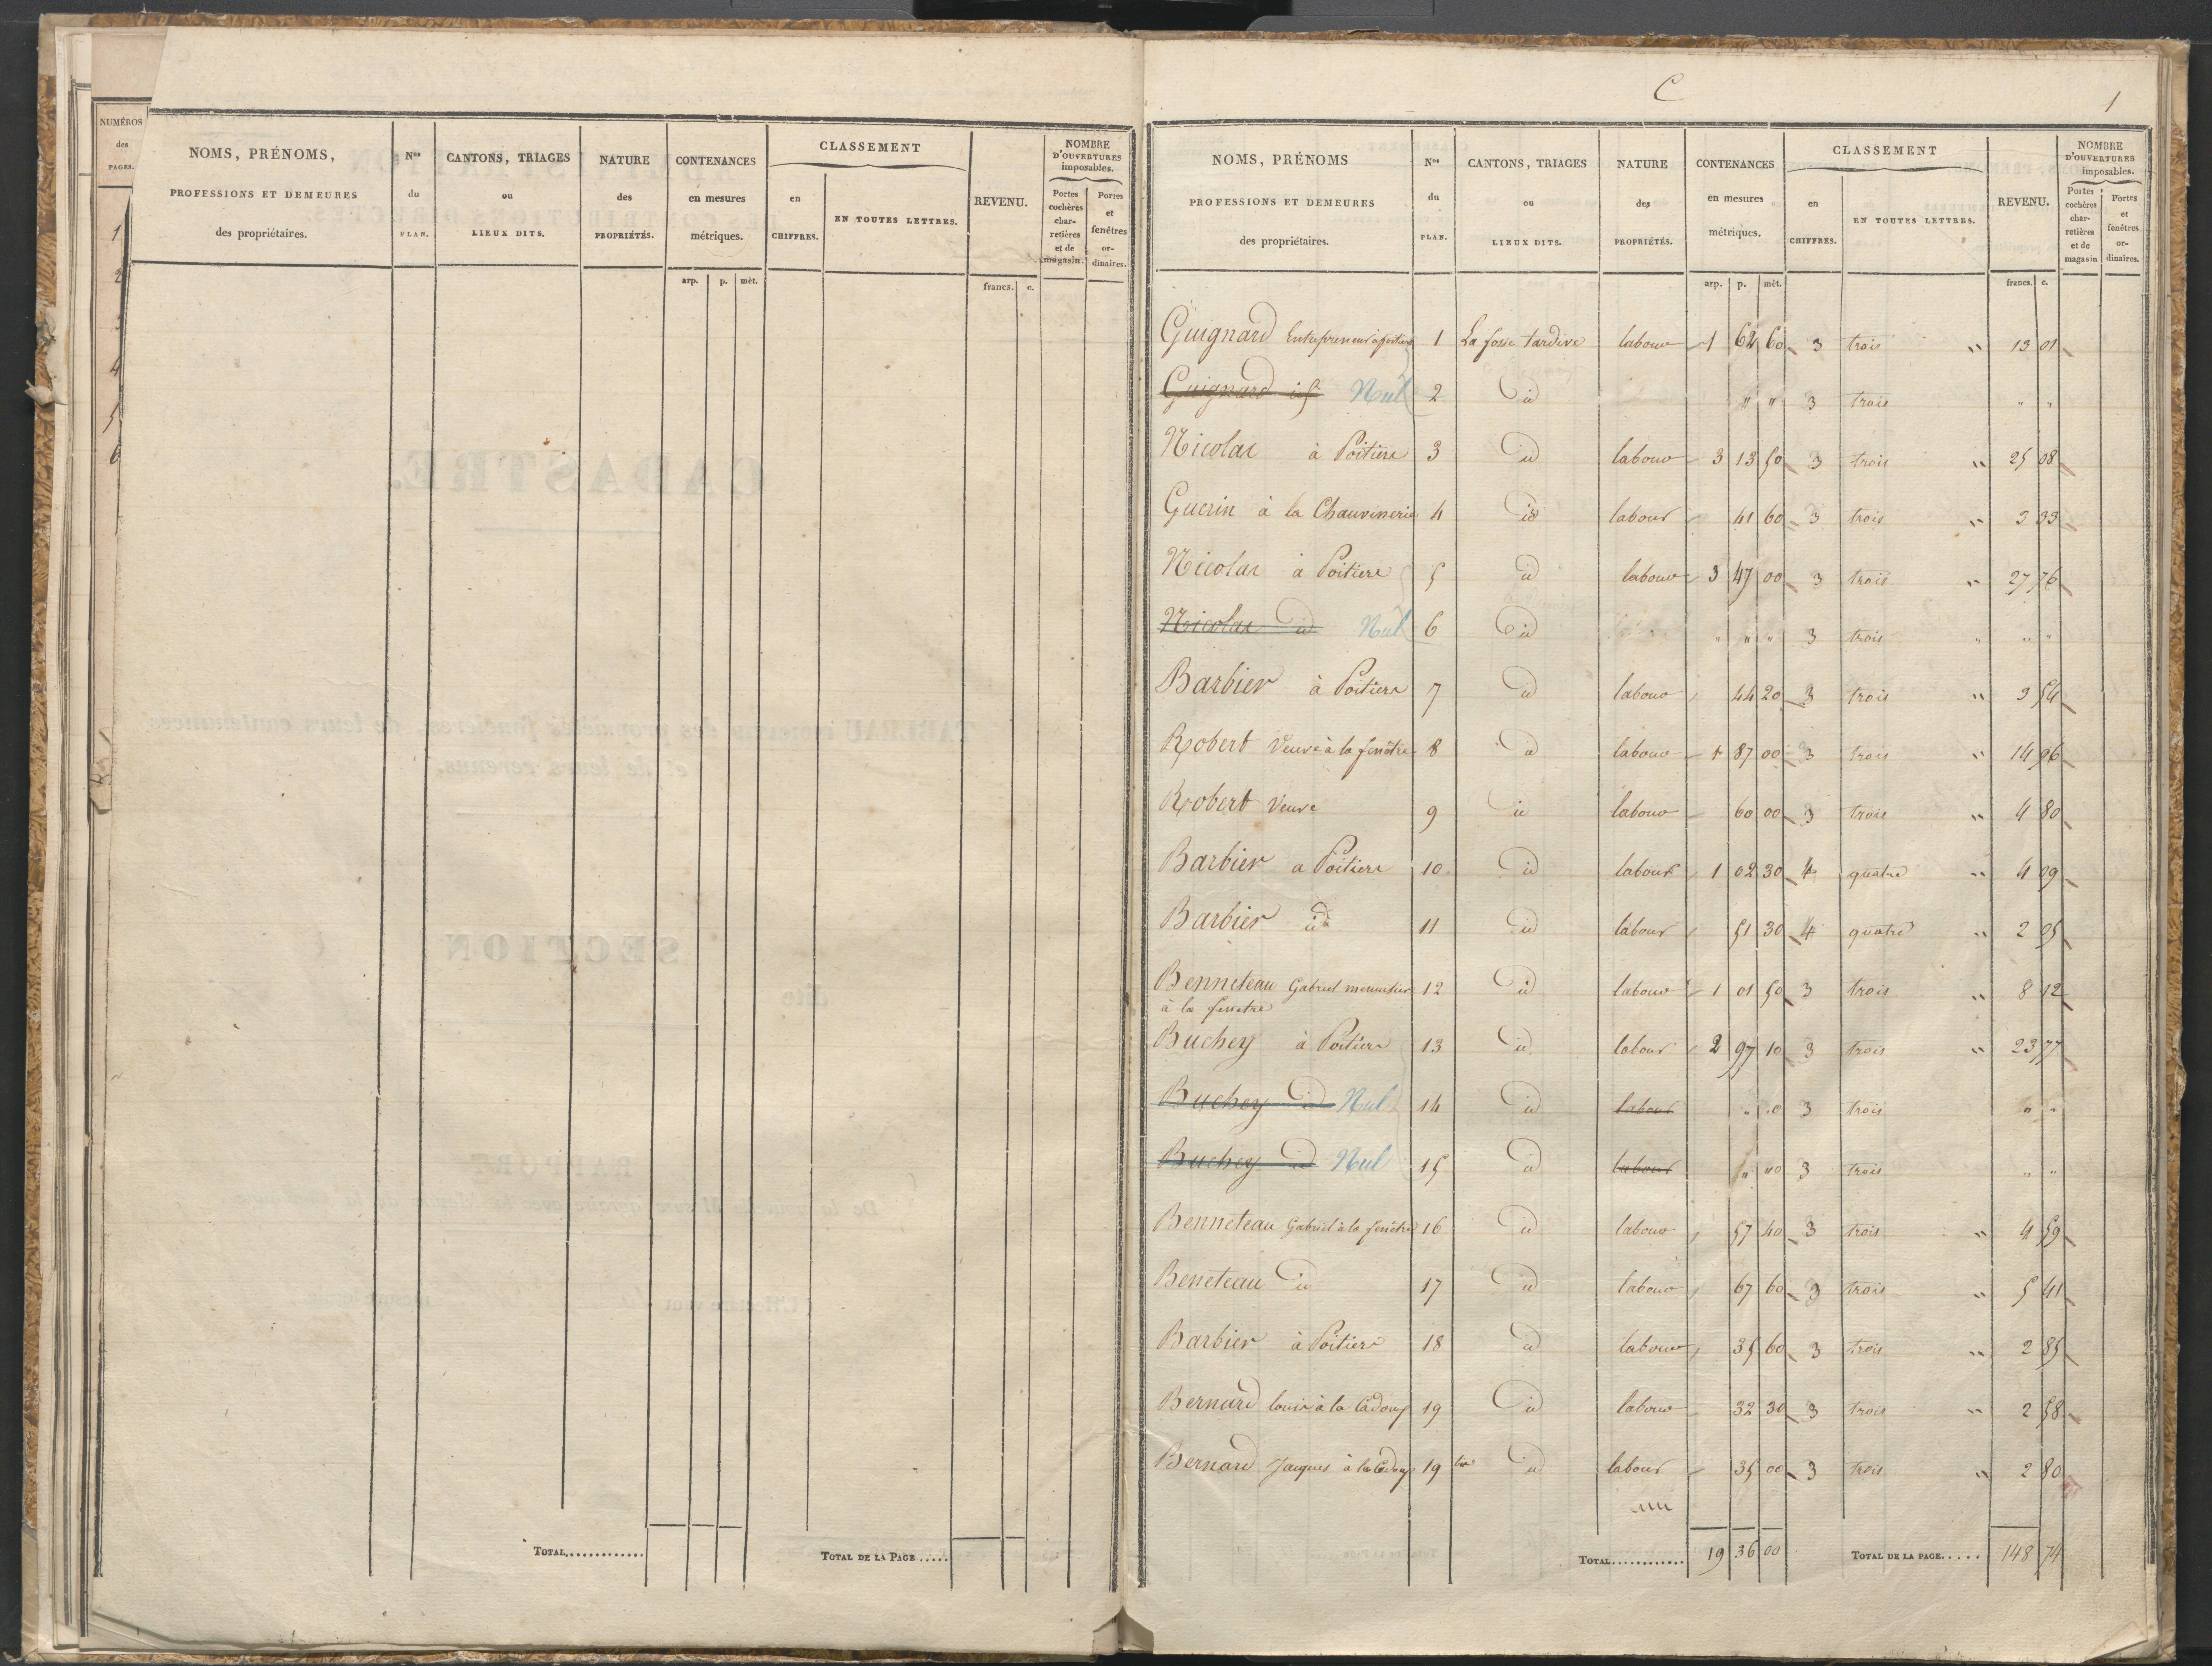 NUMÉROS
des
PAGES.
1
2
3
4
5
6
NOMS, PRÉNOMS,
PROFESSIONS ET DEMEURES
des propriétaires.
Nos
du
PLAN.
CANTONS, TRIAGES
ou
LIEUX DITS.
NATURE
des
PROPRIÉTÉS.
CONTENANCES
en mesures
métriques.
arp. p. mèt.
CLASSEMENT
en
CHIFFRES.
EN TOUTES LETTRES.
REVENU.
francs. c.
NOMBRE
D'OUVERTURES
imposables.
Portes
cochères
char-
retières
et de
magasin.
Portes
et
fenêtres
or-
dinaires.
TOTAL............
TOTAL DE LA PAGE.....
C
1
NOMS, PRÉNOMS
PROFESSIONS ET DEMEURES
des propriétaires.
Nos
du
PLAN.
CANTONS, TRIAGES
ou
LIEUX DITS.
NATURE
des
PROPRIÉTÉS.
CONTENANCES
en mesures
métriques.
arp. p. mèt.
CLASSEMENT
en
CHIFFRES.
EN TOUTES LETTRES.
REVENU.
francs. c.
NOMBRE
D'OUVERTURES
imposables.
Portes
cochères
char-
retières
et de
magasin
Portes
et
fenêtres
or-
dinaires.
Guignard Entrepreneur à poitiers 1 La fosse tardive labour 1 62 60 3 trois " 13 01
Guignard id Nul 2 id " " 3 trois " "
Nicolas à Poitiers 3 id labour 3 13 50 3 trois " 25 08
Guerin à la Chauvinerie 4 id labour 41 60 3 trois " 3 33
Nicolas à Poitiers 5 id labour 3 47 00 3 trois " 27 76
Nicolas id Nul 6 id " " " 3 trois " " "
Barbier à Poitiers 7 id labour 44 20 3 trois " 3 54
Robert Veuve à la fenêtre 8 id labour 1 87 00 3 trois " 14 96
Robert Veuve 9 id labour 60 00 3 trois " 4 80
Barbier a Poitiers 10 id labour 1 02 30 4 quatre " 4 09
Barbier id 11 id labour 51 30 4 quatre " 2 05
Benneteau Gabriel meunier 12 id labour 1 01 50 3 trois " 8 12
à la fenetre
Buchey à Poitiers 13 id labour 2 97 10 3 trois " 23 77
Buchey id Nul 14 id labour " 3 trois " "
Buchey id Nul 15 id labour " 3 trois " "
Benneteau Gabriel à la fenêtre 16 id labour 57 40 3 trois " 4 59
Beneteau id 17 id labour 67 60 3 trois " 5 41
Barbier à Poitiers 18 id labour 35 60 3 trois " 2 85
Bernard louis à la Cadoug 19 id labour 32 30 3 trois " 2 58
Bernard Jacques à la Cadoug 19 bis id labour 35 00 3 trois " 2 80
TOTAL............ 19 36 00 TOTAL DE LA PAGE..... 148 74